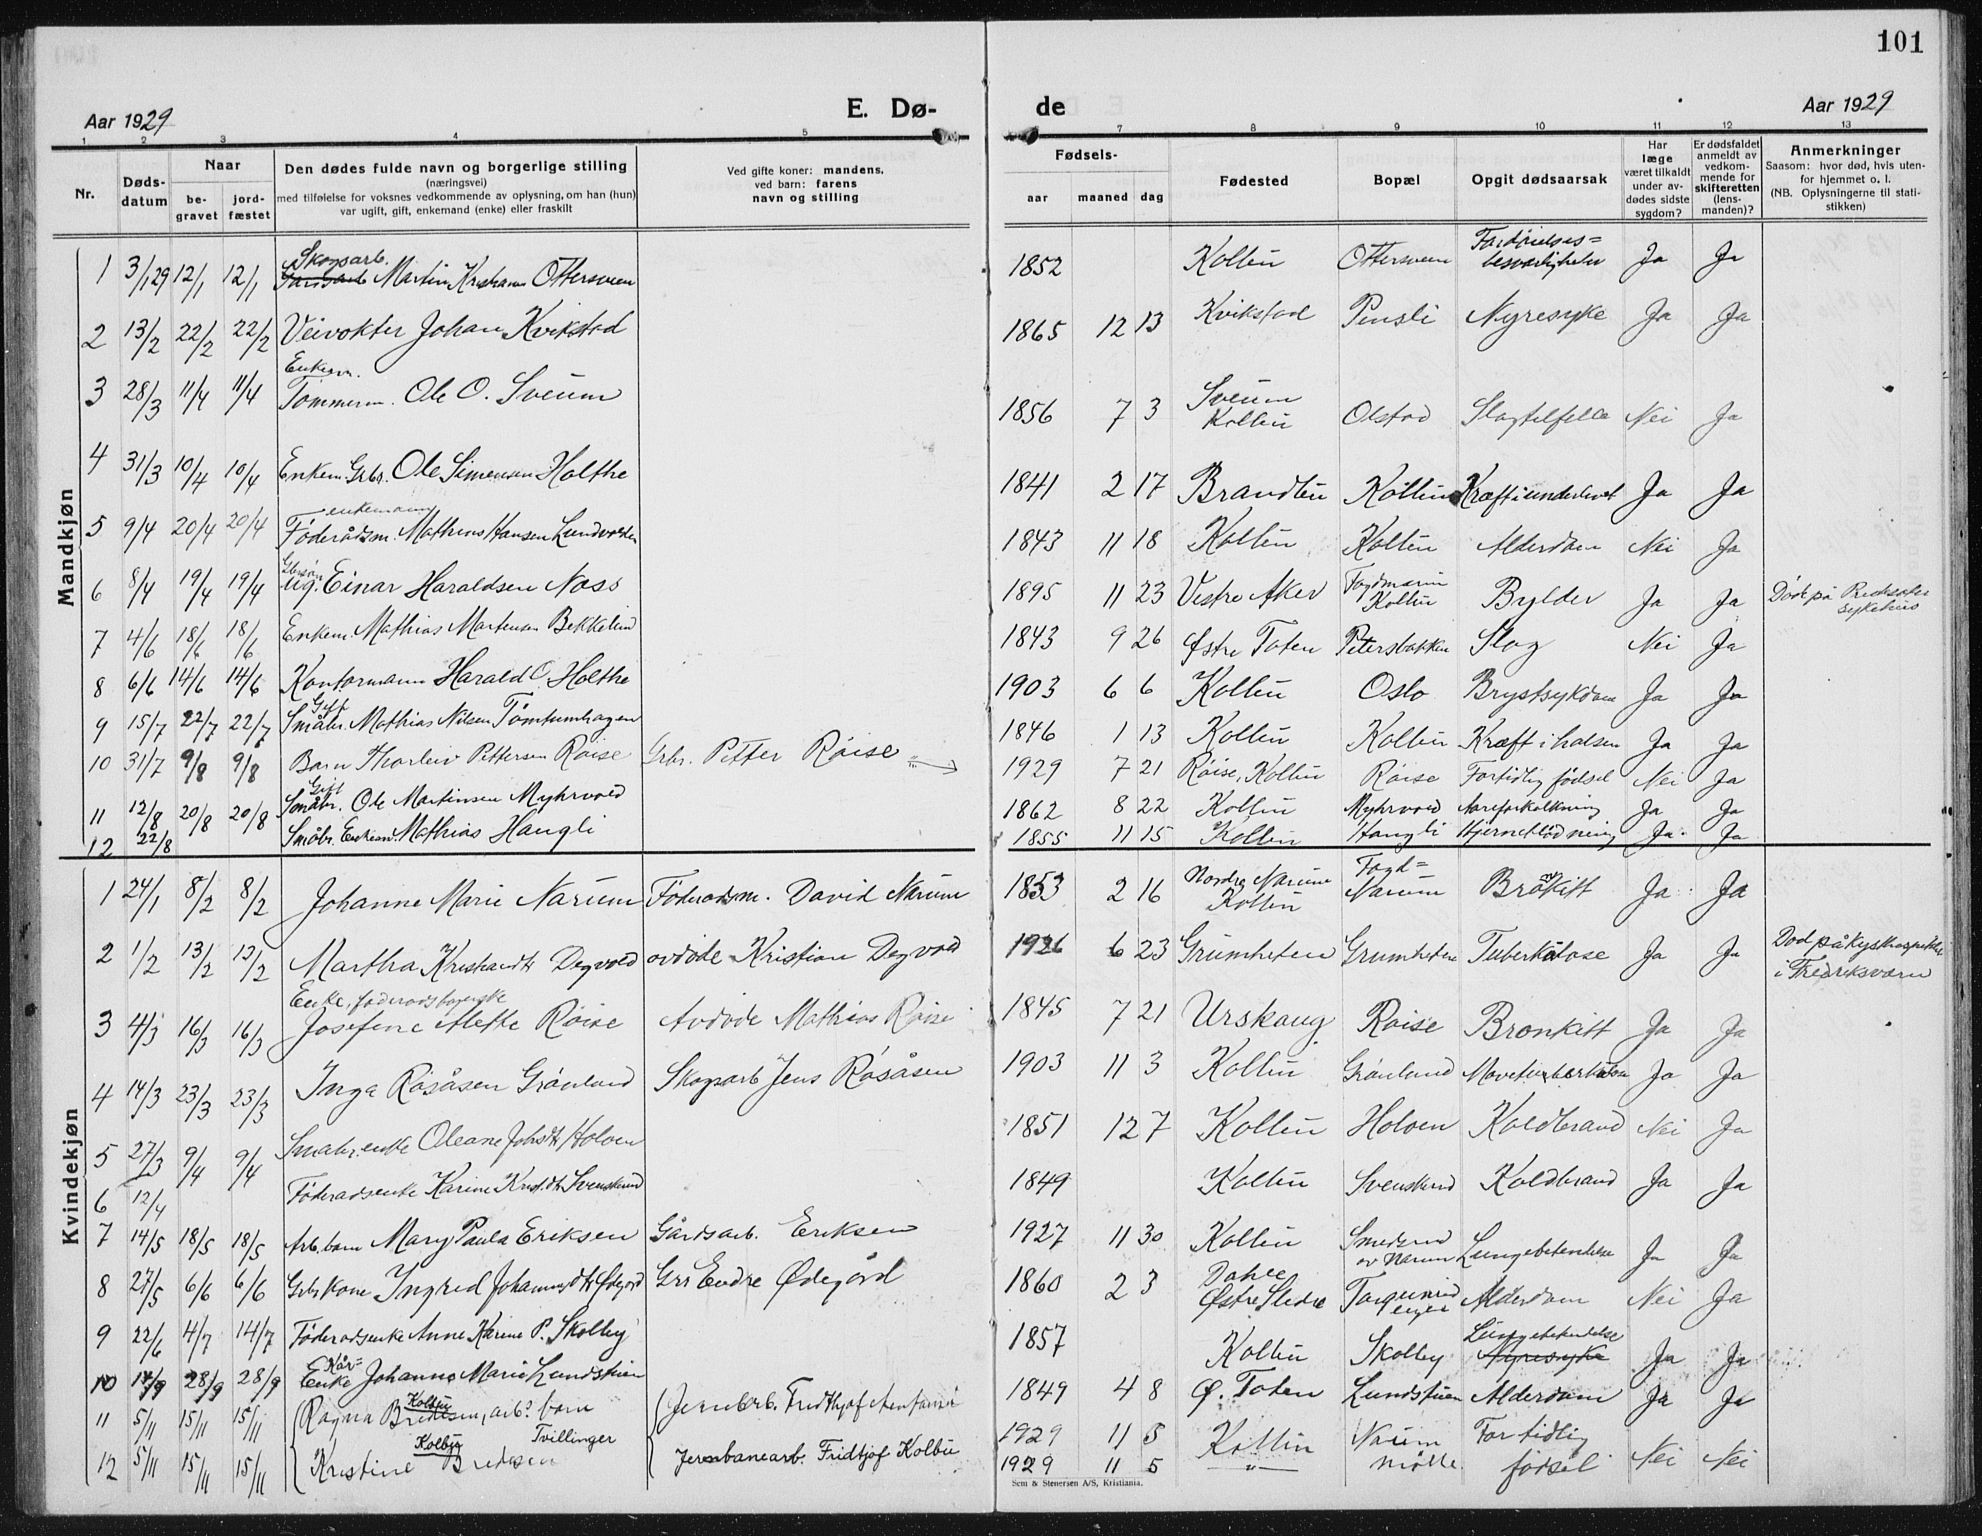 101
Aar 1929
E. Dø-
de
Aar 1929
1 2 3 4 5 7 8 9 10 11 12 13
Nr.
Døds-
datum
Naar
be-
gravet
jord-
fæstet
Den dødes fulde navn og borgerlige stilling
(næringsvei)
med tilføielse for voksnes vedkommende av oplysning, om han (hun)
var ugift, gift, enkemand (enke) eller fraskilt
Ved gifte koner: mandens,
ved barn: farens
navn og stilling
Fødsels-
aar maaned dag
Fødested
Bopæl
Opgit dødsaarsak
Har
læge
været tilkaldt
under av-
dødes sidste
sygdom?
Er dødsfaldet
anmeldt av
vedkom-
mende for
skifteretten
(lens-
manden)?
Anmerkninger
Saasom: hvor død, hvis uten-
for hjemmet o. l.
(NB. Oplysningerne til stati-
stikken)
Mandkjøn
1 3/1 29 12/1 12/1 Skogsarb. Martin Ottersveen 1852 Kolbu Ottersveen Ja Ja
2 13/2 22/2 22/2 Veivokter Johan Kvikstad 1865 12 13 Kvikstad Pinsli Nyresyke Ja Ja
3 28/3 11/4 11/4 Enkem. Tømmerm. Ole O. Sveum 1856 7 3 Sveum Kolbu Olstad Slagtilfelle Nei Ja
4 31/3 10/4 10/4 Enkem. Grbr. Ole Simensen Holthe 1841 2 17 Brandbu Kolbu Kræft i underlivet Ja Ja
5 9/4 20/4 20/4 enkemann Føderådsm. Mathias Hansen Lundvolden 1843 11 18 Kolbu Kolbu Alderdom Nei Ja
6 8/4 19/4 19/4 ug. Einar Haraldsen Noss 1895 11 23 Vestre Aker Kolbu Bylder Ja Ja Død på sykehus
7 4/6 18/6 18/6 Enkem. Mathias Martensen Bekkelund 1843 9 26 Østre Toten Petersbakken Slag Nei Ja
8 6/6 14/6 14/6 Kontormann Harald O. Holthe 1903 6 6 Kolbu Oslo Brystsykdom Ja Ja
9 15/7 22/7 22/7 Gift Småbr. Mathias Nilsen Tømtumhagen 1846 1 13 Kolbu Kolbu Kræft i halsen Ja Ja
10 31/7 9/8 9/8 Barn Thorleiv Pettersen Røise Grbr. Petter Røise 1929 7 21 Røise, Kolbu Røise Fortidlig fødsel Nei Ja
11 12/8 20/8 20/8 Gift Småbr. Ole Martinsen Myhrvold 1862 8 22 Kolbu Myhrvold Aareforkalkning Ja Ja
12 22/8 Småbr. Enkem. Mathias Haugli 1855 11 15 Kolbu Haugli Hjerneblødning Ja Ja
Kvindekjøn
1 24/1 8/2 8/2 Johanne Marie Narum Føderadsm. David Narum 1853 2 16 Nordre Narum Kolbu Narum Ja Ja
2 1/2 13/2 13/2 Martha Degvold avdøde Kristian Degvold 1926 6 23 Grumheten Grumheten Tuberkulose Ja Ja Død på kysthospitalet i Fredriksværn
3 4/3 16/3 16/3 Enke, Josefine Alette Røise Avdøde Mathias Røise 1845 7 21 Urskaug Røise Bronkitt Ja Ja
4 14/3 23/3 23/3 Inga Røsåsen Grønland Skogsarb Jens Røsåsen 1903 11 3 Kolbu Grønland Mavetuberkulose Ja Ja
5 27/3 9/4 9/4 Småbr.enke Oleane Johsdtr Holven 1851 12 7 Kolbu Holven Koldbrand Nei Ja
6 12/4 Føderadsenke Karine Krist.dtr Svenskerud 1849 Kolbu Svenskerud Koldbrand Ja Ja
7 14/5 18/5 18/5 Arb. barn Mary Paula Eriksen Gårdsarb. Eriksen 1927 11 30 Kolbu Smedsrud av Narum Lungebetendelse Ja Ja
8 27/5 6/6 6/6 Grbr kone Ingrid Johannesdtr Ødegård Gbr Endre Ødegård 1860 2 3 Østre Slidre Alderdom Nei Ja
9 22/6 4/7 14/7 Føderadsenke Anne Karine P. Skolby 1857 Kolbu Skolby Lungebetendelse Nyresyke Ja Ja
10 14/9 28/9 28/9 Kår= Enke Johanne Marie Lundstuen 1849 4 8 Ø. Toten Lundstuen Alderdom Ja Ja
11 5/11 15/11 15/11 Ragna Bredesen Kolbu, arb. barn Jernb.arb. Fridthjof 1929 11 5 Kolbu Narum Fortidlig Nei Nei
Tvillinger
12 5/11 15/11 15/11 Kristine Bredesen Kolbu Jernbanearb. Fridtjof Kolbu 1929 11 5 — " — mølle fødsel
Sem & Stenersen A/S, Kristiania.